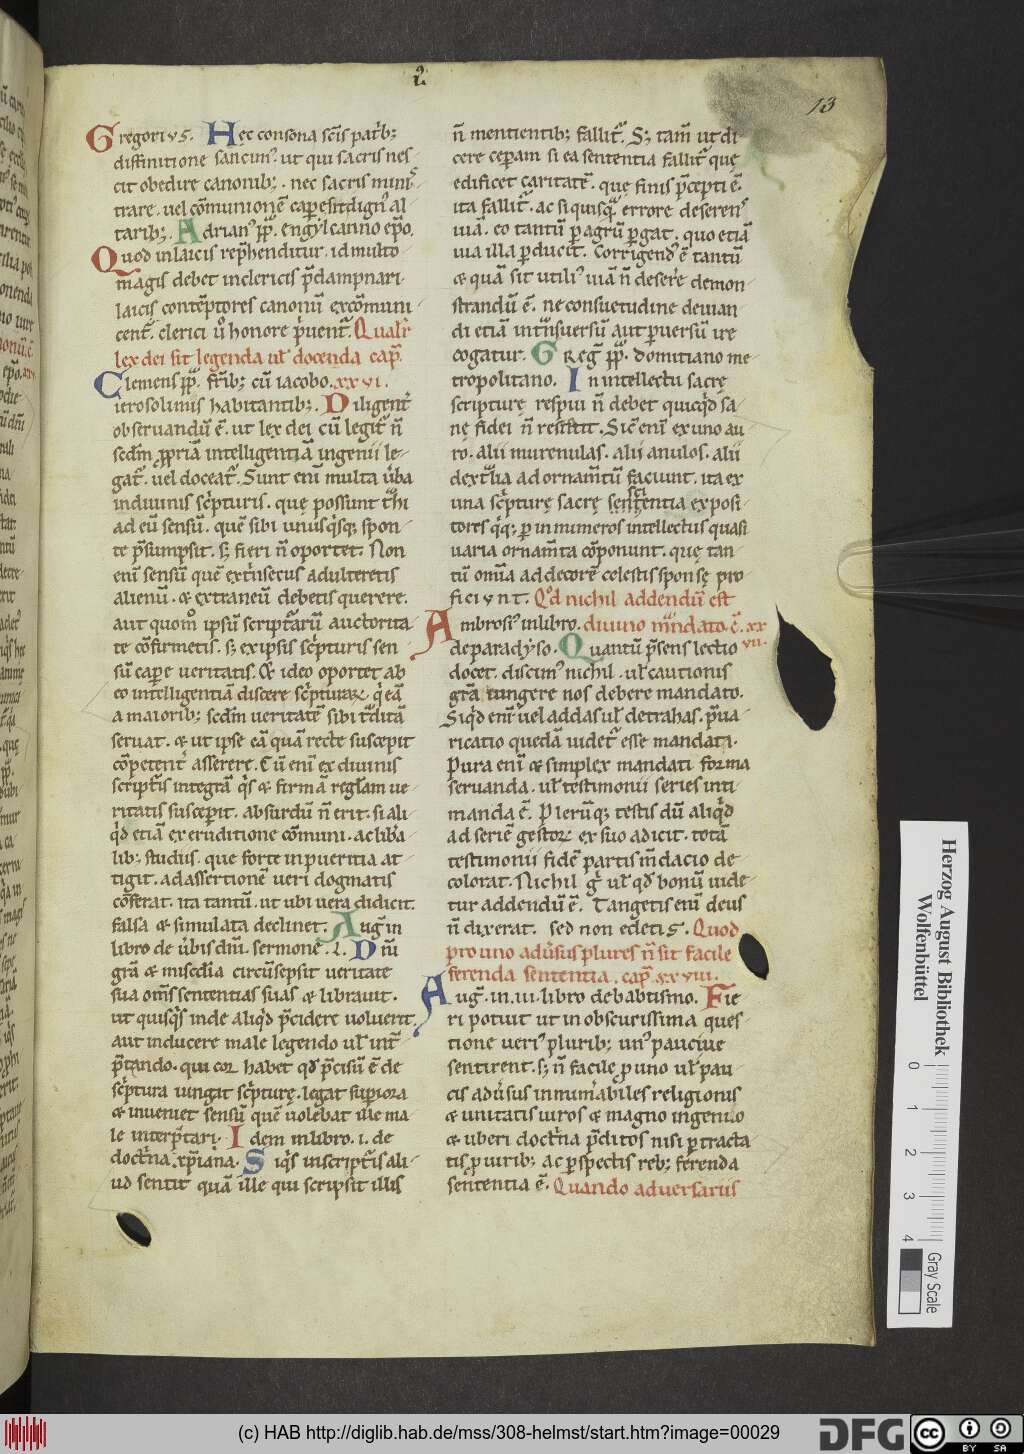 13
Gregorius. Hęc consona scīs patrib;
diffinitione sancimꝰ. ut qui sacris nes
cit obedire canonib;. nec sacris mini
trare. uel cōmunionē capesit dignꝰ al
tarib;. Adrianꝰ pp̄. Engyl canno ep̄o.
Quod in laicis rep̄henditur. id multo
magis debet in clericis p̄dampnari.
laicis contēptores canonū excōmuni
cent̄. clerici ū honore priuent̄. Qualit̄
lex dei sit legenda ul̄ docenda cap̄.
Clemens pp̄. fr̄ib; cū iacobo. xxvi.
ierosolimis habitantib;. Diligent̄
obseruandū ē. ut lex dei cū legit̄ n̄
scdm̄ pp̄riā intelligentiā ingenii le
gat̄. uel doceat̄. Sunt enī multa ūba
in diuinis sc̄pturis. que possunt t̄hi
ad eū sensū. quē sibi unusq̇sq; spon
te p̄sumpsit. s; fieri n̄ oportet. Non
enī sensū quē ext̄nsecus adulteretis
alienū. & extraneū debetis querere.
aut quom̊ ipsū scriptarū auctorita
te cōfirmetis. s; ex ipsis sc̄pturis sen
sū capere ueritatis. & ideo oportet ab
eo intelligentiā discere sc̄pturaꝝ. q̇ eā
a maiorib; scdm̄ ueritatē sibi t̄ditā
seruat. & ut ipse eā quā recte suscepit
cōpetent̄ asserere. Cū enī ex diuinis
scriptis integrā q̇s & firmā reglam ue
ritatis susceperit. absurdū n̄ erit. si ali
q̇d etiā ex eruditione cōmuni. ac liba
lib; studiis. que forte in pueritia at
tigit. ad assertionē ueri dogmatis
cōferat. ita tantū. ut ubi uera didicit
falsa & simulata declinet. Aug̃ in
libro de ūbis dn̄i. sermone. l. Dn̄i
gr̄a & miscd̄ia circūsepsit ueritate
sua om̄s sententias suas & librauit.
ut quisq̇s inde aliq̇d p̄cidere uoluerit.
aut inducere male legendo ul̄ int̄
p̄tando. qui cor habet qd̄ p̄cisū ē de
sc̄ptura iungit sc̄pture. legat superiora
& inueniet sensū quē uolebat ille ma
le interp̄tari. Idem in libro. i. de
doctrina xp̄iana. Siq̇s in scripturis ali
ud sentit quā ille qui scripsit illis
n̄ mentientib; fallit̄. S; tam̄ ut di
cere ceperam si ea sententia fallit̄ quę
edificet caritatē. quę finis p̄cepti ē.
ita fallit̄. ac si quisquā errore deserenꝰ
uiā. eo tantū p agrū pgat. quo etiā
uia illa pducit. Corrigendꝰ ē tantū
& quā sit utiliꝰ uiā n̄ deserere demon
strandū ē. ne consuetudine deuian
di etiā in tn̄suersū aut puersū ire
cogatur. Greg̃ pp̄. domitiano me
tropolitano. In intellectu sacrę
scripturę respui n̄ debet quicq̇d sa
nę fidei n̄ resistit. Sic enī ex uno au
ro. alii murenulas. alii anulos. alii
dext̄lia ad ornam̄tū faciunt. ita ex
una sc̄pturę sacrę sententia exposi
tores q̇q; p innumeros intellectus quasi
uaria ornam̄ta cōponunt. quę tan
tū om̄ia ad decorē celestis sponsę pro
ficiunt. Qd̊ nichil addendū est
Ambrosiꝰ in libro. diuino m̄ndato. c̄. xx
de paradyso. Quantū p̄sens lectio vii.
docet. discimꝰ nichil. ul̄ cautionis
gr̄a iungere nos debere mandato.
Siq̇d enī uel addas ul̄ detrahas. p̄ua
ricatio quedā uidet̄ esse mandati.
Pura enī & simplex mandati forma
seruanda. ul̄ testimonii series inti
manda ē. Plerūq; testis dū aliq̇d
ad seriē gestoꝝ ex suo adicit. totā
testimonii fidē partis m̄dacio de
colorat. Nichil g̊ ul̄ qd̄ bonū uide
tur addendū ē. Tangetis enī deus
n̄ dixerat. sed non edetis. Quod
pro uno adūsus plures n̄ sit facile
ferenda sententia. cap̄. xxviii.
Aug̃. in. iii. libro de babtismo. Fie
ri potuit ut in obscurissima ques
tione ueriꝰ plurib; unꝰ pauciue
sentirent. s; n̄ facile p uno ul̄ pau
cis adūsus innumabiles religionis
& unitatis uiros & magno ingenio
& uberi doctrina p̄ditos nisi ptracta
tis p uirib; ac pspectis reb; ferenda
sententia ē. Quando aduersarius
Herzog August Bibliothek
Wolfenbüttel
0
1
2
3
4
Gray Scale
(c) HAB http://diglib.hab.de/mss/308-helmst/start.htm?image=00029
DFG
cc
BY SA